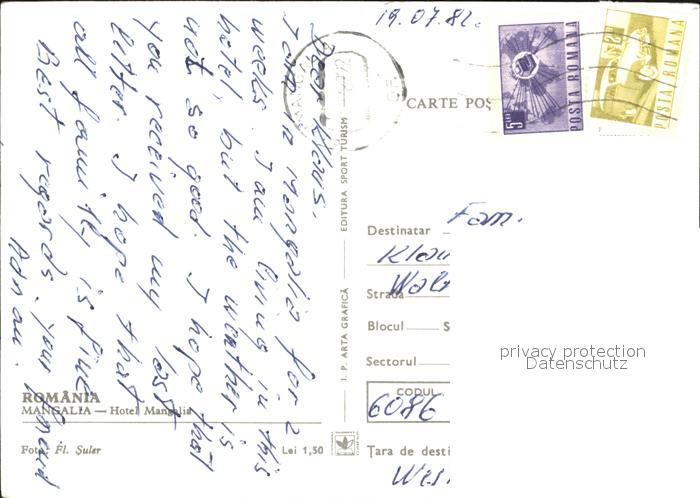 19.07.82.
Dear Klaus,
I am in Mangalia for 2
weeks. I am living in this
hotel, but the weather is
not so good. I hope that
you received my last
letter. I hope that
all family is fine
Best regards, your friend
Adnan.
ROMÂNIA
MANGALIA — Hotel Mangalia
Foto: Fl. Șuler
Lei 1,50
I. P. ARTA GRAFICĂ
EDITURA SPORT TURISM
MANGALIA
CARTE POȘ
5 LEI
POSTA ROMANA
POSTA ROMANA
Fam.
Destinatar
Klau
Strada
Blocul
S
Sectorul
CODUL
6086
Țara de desti
Wes
privacy protection
Datenschutz